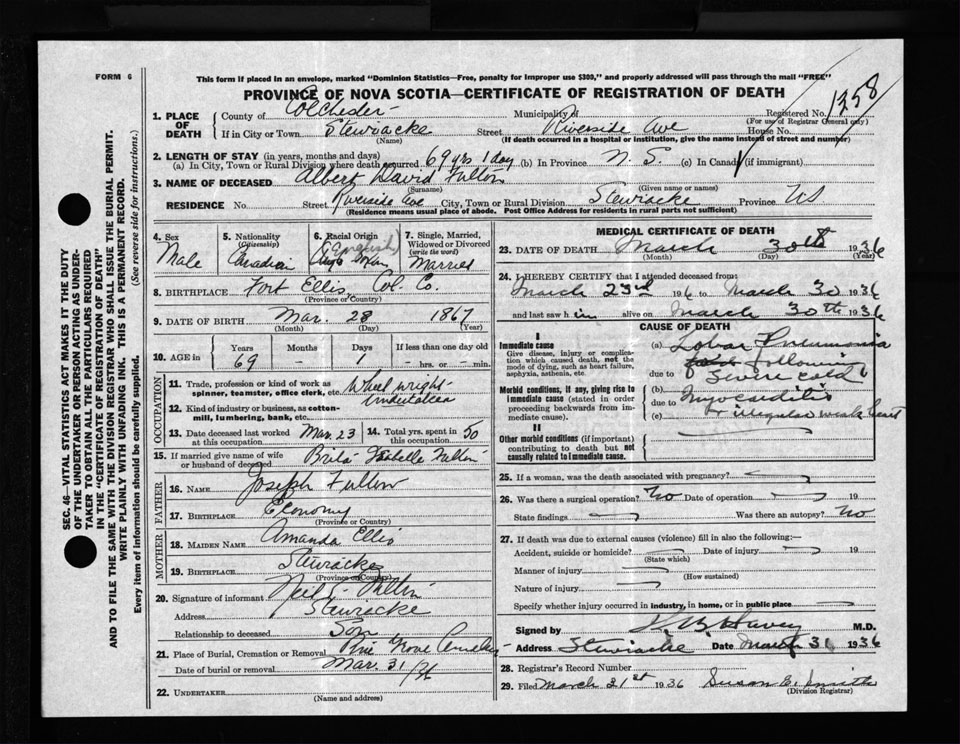 FORM 6
This form if placed in an envelope, marked "Dominion Statistics—Free, penalty for improper use $300," and properly addressed will pass through the mail "FREE"
PROVINCE OF NOVA SCOTIA—CERTIFICATE OF REGISTRATION OF DEATH
1. PLACE OF DEATH
County of Colchester Municipality of Registered No. 1358
(For use of Registrar General only)
If in City or Town Stewiacke Street Riverside Ave House No.
(Name) (If death occurred in a hospital or institution, give the name instead of street and number)
2. LENGTH OF STAY (in years, months and days)
(a) In City, Town or Rural Division where death occurred 69 yrs 1 day (b) In Province N. S. (c) In Canada (if immigrant)
3. NAME OF DECEASED Albert David Fulton
(Surname) (Given name or names)
RESIDENCE No. Street Riverside Ave City, Town or Rural Division Stewiacke Province NS
(Residence means usual place of abode. Post Office Address for residents in rural parts not sufficient)
4. Sex Male
5. Nationality (Citizenship) Canadian
6. Racial Origin English
7. Single, Married, Widowed or Divorced (write the word) Married
8. BIRTHPLACE Fort Ellis, Col. Co.
(Province or Country)
9. DATE OF BIRTH Mar. 28 1867
(Month) (Day) (Year)
10. AGE in Years Months Days If less than one day
69 - 1 hrs. or min.
OCCUPATION
11. Trade, profession or kind of work as spinner, teamster, office clerk, etc. Wheelwright-Undertaker
12. Kind of industry or business, as cotton-mill, lumbering, bank, etc.
13. Date deceased last worked at this occupation Mar. 23
14. Total yrs. spent in this occupation 50
15. If married give name of wife or husband of deceased Isabelle Fulton
FATHER
16. NAME Joseph Fulton
17. BIRTHPLACE Economy
(Province or Country)
MOTHER
18. MAIDEN NAME Amanda Ellis
19. BIRTHPLACE Stewiacke
(Province or Country)
20. Signature of informant Neil Fulton
Address Stewiacke
Relationship to deceased Son
21. Place of Burial, Cremation or Removal Pine Grove Cemetery
Date of burial or removal Mar. 31/36
22. UNDERTAKER
(Name and address)
MEDICAL CERTIFICATE OF DEATH
23. DATE OF DEATH March 30th 1936
(Month) (Day) (Year)
24. I HEREBY CERTIFY that I attended deceased from:
March 23rd 1936 to March 30 1936
and last saw him alive on March 30th 1936
CAUSE OF DEATH
I
Immediate cause
Give disease, injury or complication which caused death, not the mode of dying, such as heart failure, asphyxia, asthenia, etc.
(a) Lobar Pneumonia
following
due to severe cold
Morbid conditions, if any, giving rise to immediate cause (stated in order proceeding backwards from immediate cause).
(b)
due to Myocarditis
(c) irregular weak heart
II
Other morbid conditions (if important) contributing to death but not causally related to immediate cause.
25. If a woman, was the death associated with pregnancy?
26. Was there a surgical operation? No Date of operation 19
State findings Was there an autopsy? No
27. If death was due to external causes (violence) fill in also the following:—
Accident, suicide or homicide? Date of injury 19
(State which)
Manner of injury
(How sustained)
Nature of injury
Specify whether injury occurred in industry, in home, or in public place
Signed by M.D.
Address Stewiacke Date March 31 1936
28. Registrar's Record Number
29. Filed March 31st 1936 Susan E. Smith
(Division Registrar)
SEC. 46—VITAL STATISTICS ACT MAKES IT THE DUTY
OF THE UNDERTAKER OR PERSON ACTING AS UNDER-
TAKER TO OBTAIN ALL THE PARTICULARS REQUIRED
IN THE "CERTIFICATE OF REGISTRATION OF DEATH"
AND TO FILE THE SAME WITH THE DIVISION REGISTRAR WHO SHALL ISSUE THE BURIAL PERMIT.
WRITE PLAINLY WITH UNFADING INK. THIS IS A PERMANENT RECORD.
Every item of information should be carefully supplied. (See reverse side for instructions.)